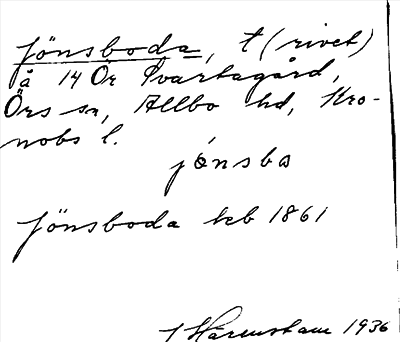 Jönsboda, t (rivet)
å 14 Ör Svartagård,
Örs sn, Allbo hd, Kro-
nobs l.
jónsbo
Jönsboda kcb 1861
1936